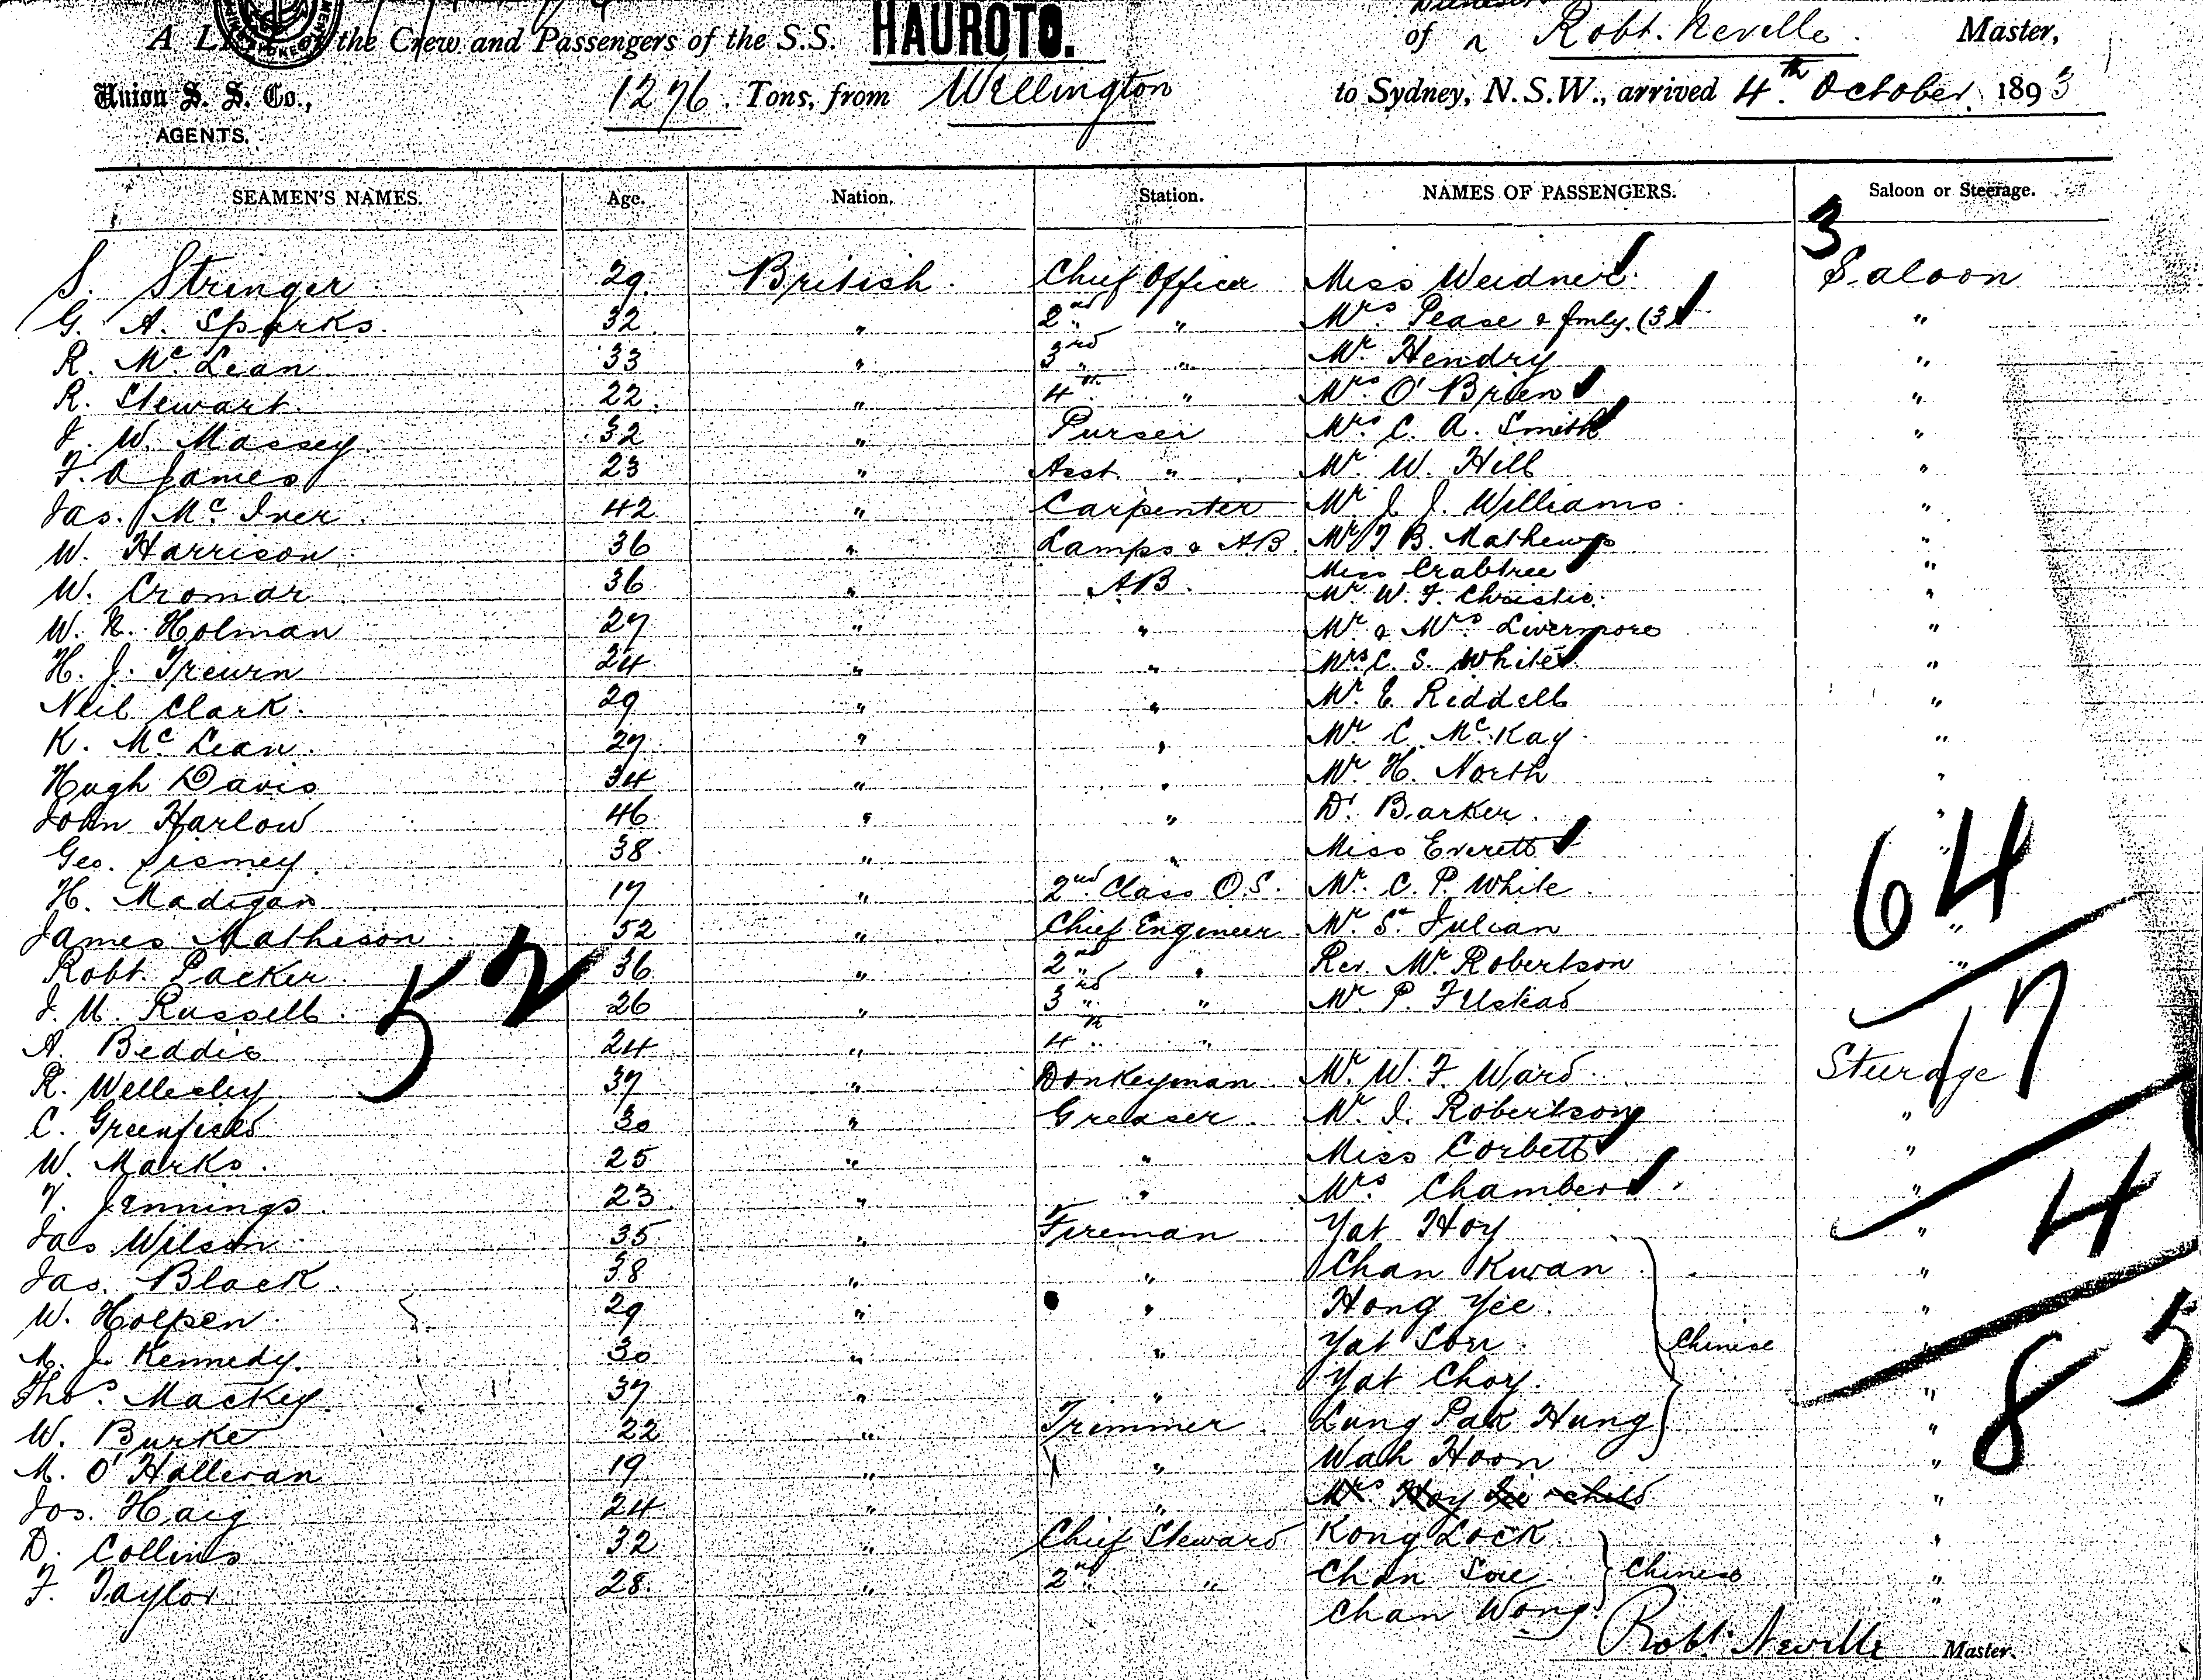 A LI the Crew and Passengers of the S.S. HAUROTO. of Robt. Neville. Master,
Union S. S. Co., 1276. Tons, from Wellington to Sydney, N.S.W., arrived 4th. October 1893
AGENTS.
SEAMEN'S NAMES. Age. Nation. Station. NAMES OF PASSENGERS. Saloon or Steerage.
3
S. Stringer 29 British. Chief Officer Miss Weidner Saloon
G. A. Sparks. 32 " 2nd " Mrs. Pease & fmly. (3) "
R. McLean 33 " 3rd " Mr Hendry "
R. Stewart 22 " 4th " Mrs O'Brien "
J. W. Massey 32 " Purser Mrs C. A. Smith "
F. A James 23 " Asst. " Mr. W. Hill "
Jas. McIver 42 " Carpenter Mr J. J. Williams "
W. Harrison 36 " Lamps & AB. Mr T B. Mathews "
W. Cromar 36 " AB. Miss Crabtree "
Mr W. F. Christie "
W. R. Holman 27 " " Mr. & Mrs. Livermore "
H. J. Treurn 24 " " Mrs C. S. White "
Neil Clark. 29 " " Mr. E. Riddell "
K. McLean. 27 " " Mr C. McKay. "
Hugh Davis 34 " " Mr H. North "
John Harlow 46 " " Dr. Barker. "
Geo. Lismey 38 " " Miss Everett "
64
H. Madigan 17 " 2nd Class O.S. Mr. C. P. White
James Matheson 52 " Chief Engineer Mr. St Julian "
52
Robt. Packer 36 " 2nd " Rev. Mr. Robertson "
J. M. Russell 26 " 3rd " Mr. P.
A. Beddie 24 " 4th "
17
R. Wellesley 37 " Donkeyman Mr. W. F. Ward Steerage
C. Greenfield 30 " Greaser. Mr. J. Robertson "
W. Marks. 25 " " Miss Corbett "
4
Jennings. 23 " " Mrs. Chambers "
Jas Wilson 35 " Fireman Yat Hoy "
Jas. Black 38 " " Chan Kwan "
W. Holpen 29 " " Hong Yee. "
85
M. J. Kennedy. 30 " " Yat Son Chinese
Thos. Mackey 37 " " Yat Choy. "
W. Burke 22 " Trimmer Lung Pak Hung "
M. O'Halleran 19 " " Wah Hoon "
Jos. Haig 24 " " Mrs Hoy child "
D. Collins 32 " Chief Steward Kong Lock "
F. Taylor 28. " 2nd " Chan Soie Chinese "
Chan Wong. "
Robt. Neville Master.